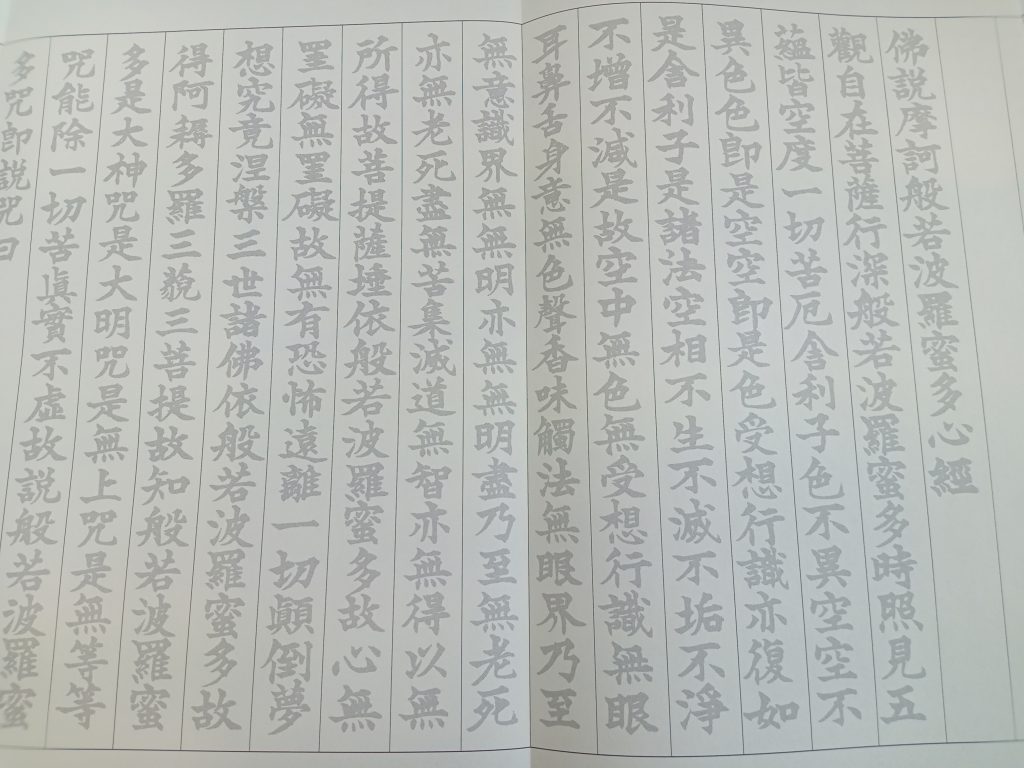 佛説摩訶般若波羅蜜多心經
觀自在菩薩行深般若波羅蜜多時照見五
蘊皆空度一切苦厄舍利子色不異空空不
異色色即是空空即是色受想行識亦復如
是舍利子是諸法空相不生不滅不垢不淨
不增不減是故空中無色無受想行識無眼
耳鼻舌身意無色聲香味觸法無眼界乃至
無意識界無無明亦無無明盡乃至無老死
亦無老死盡無苦集滅道無智亦無得以無
所得故菩提薩埵依般若波羅蜜多故心無
罣礙無罣礙故無有恐怖遠離一切顚倒夢
想究竟涅槃三世諸佛依般若波羅蜜多故
得阿耨多羅三藐三菩提故知般若波羅蜜
多是大神咒是大明咒是無上咒是無等等
咒能除一切苦眞實不虛故説般若波羅蜜
多咒即説咒曰